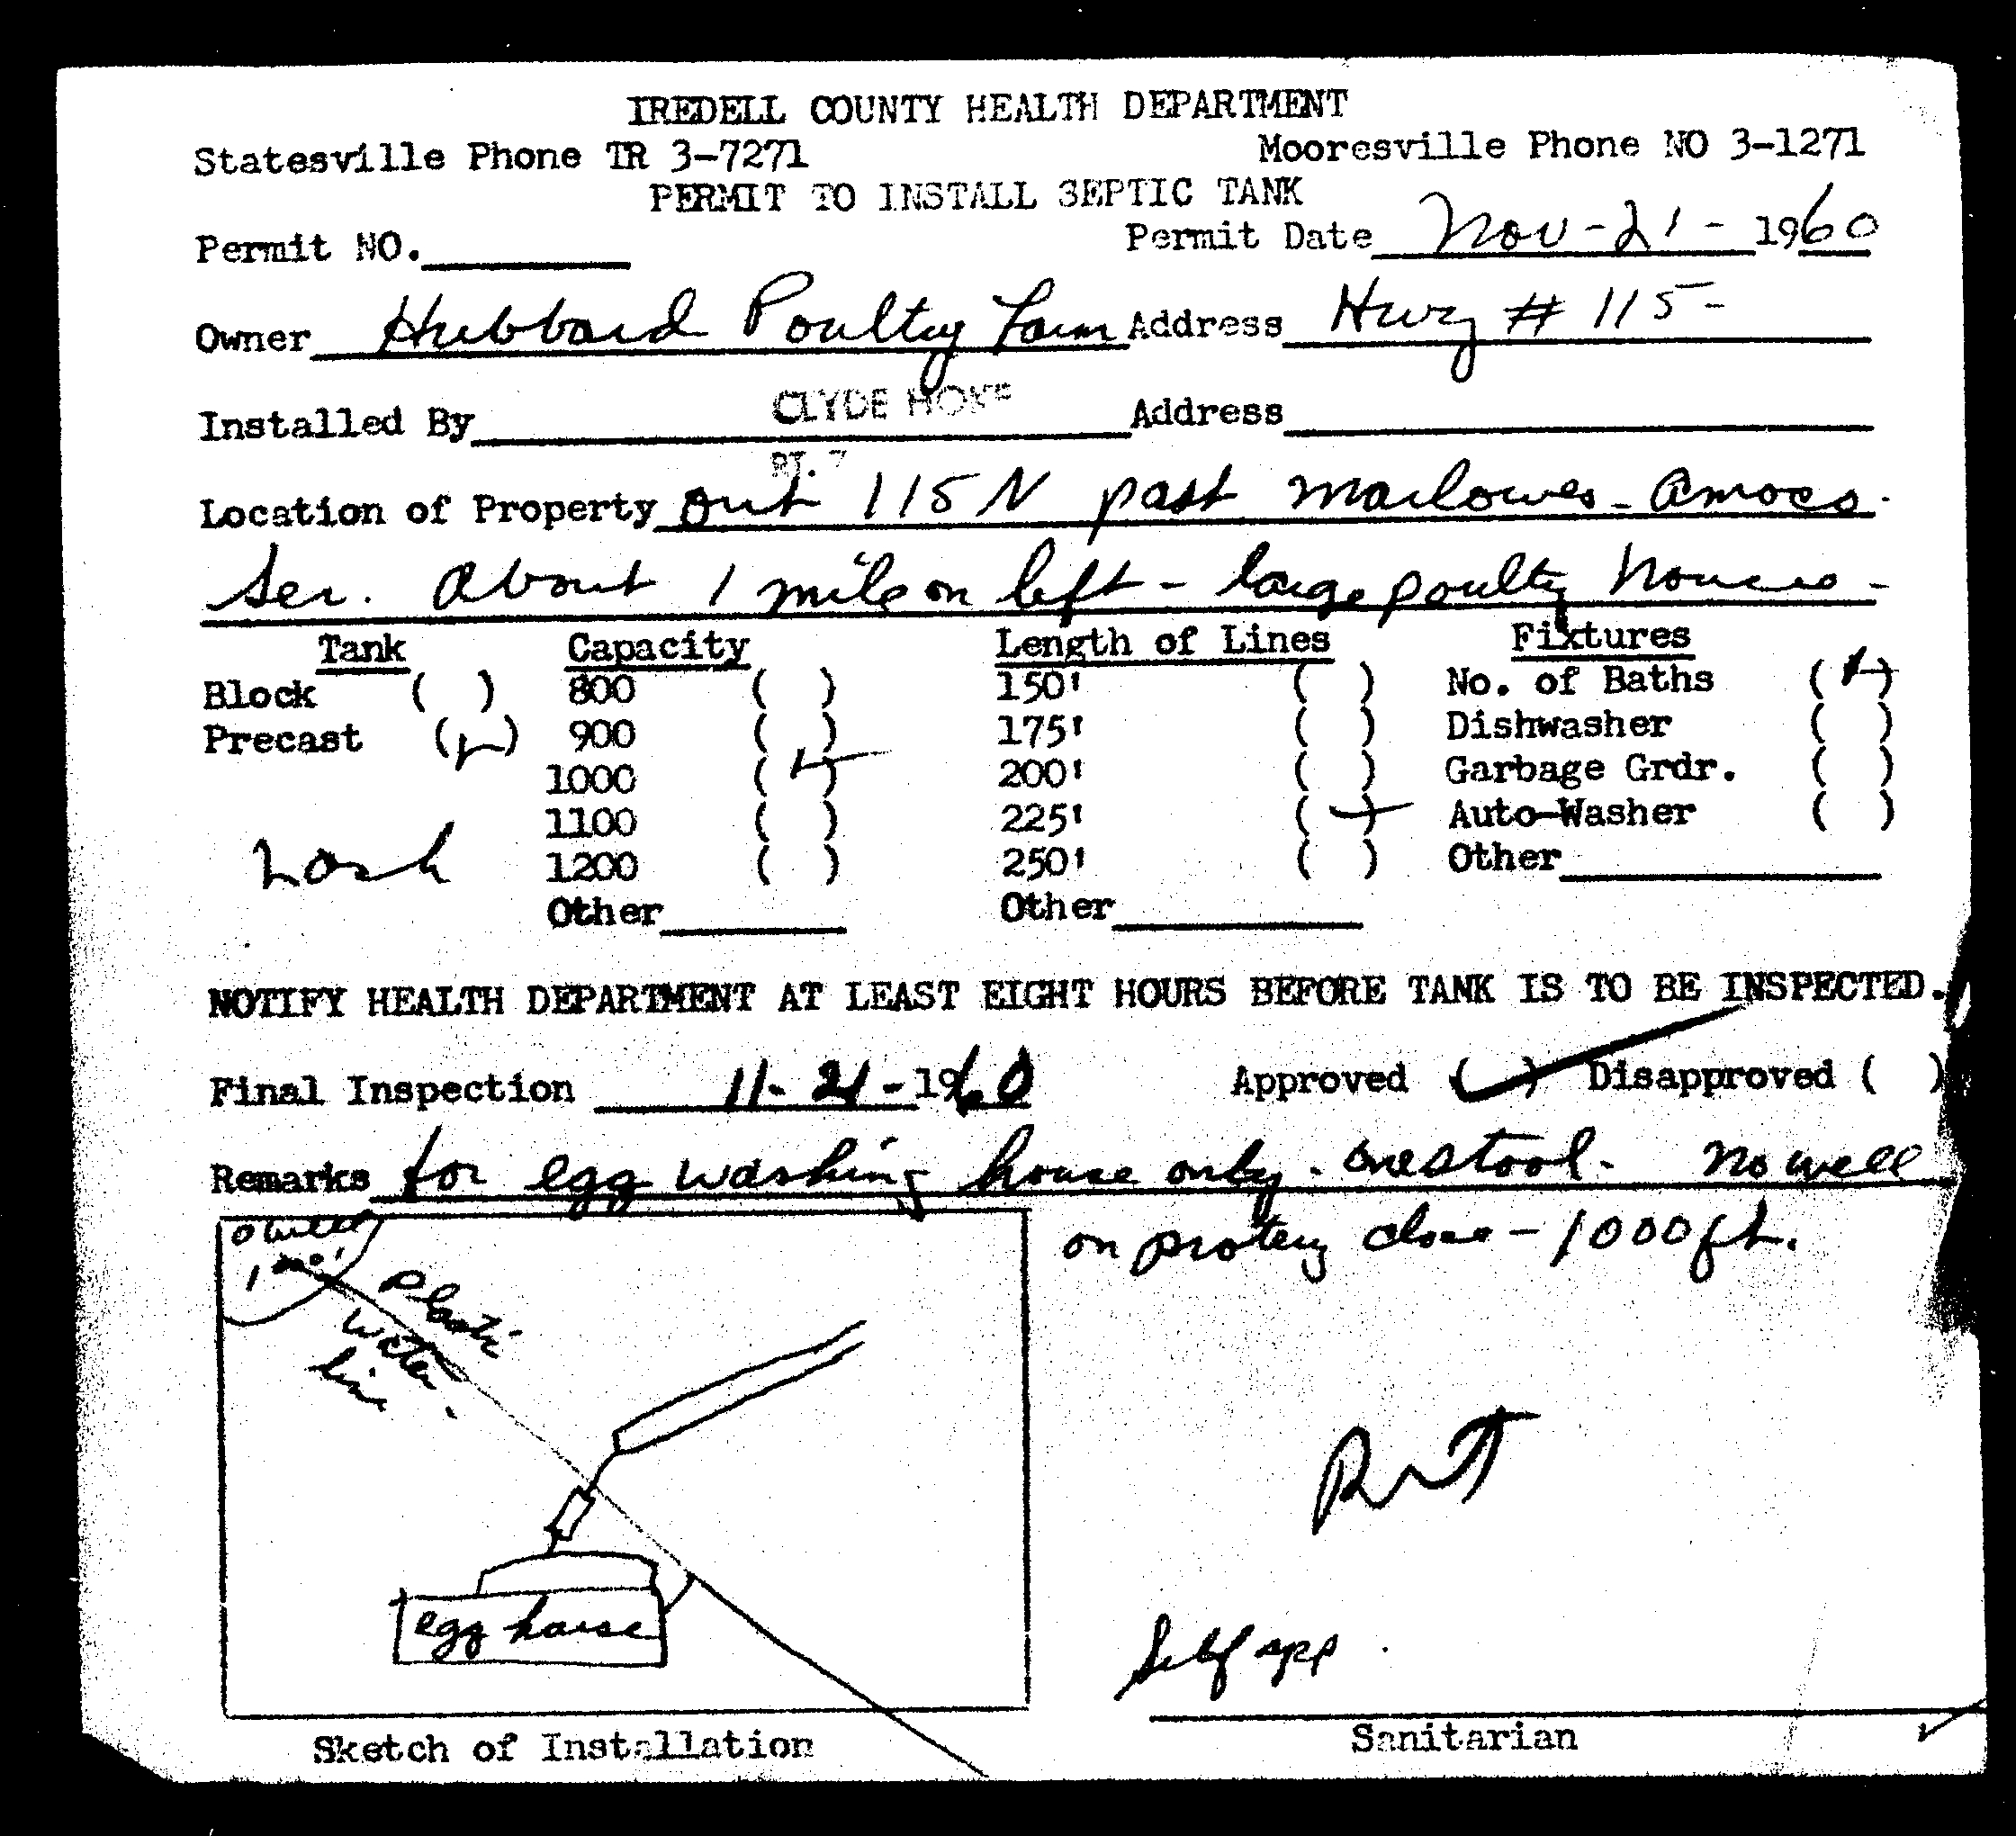 IREDELL COUNTY HEALTH DEPARTMENT
Statesville Phone TR 3-7271 Mooresville Phone NO 3-1271
PERMIT TO INSTALL SEPTIC TANK
Permit NO. Permit Date Nov-21-1960
Owner Hubbard Poultry Farm Address Hwy # 115-
Installed By CLYDE HOKE Address
RT. 7
Location of Property out 115 N past Marlowes-Amoco.
Ser. About 1 mile on left - large poultry houses -
Tank Capacity Length of Lines Fixtures
Block ( ) 800 ( ) 150' ( ) No. of Baths (1)
Precast (✓) 900 ( ) 175' ( ) Dishwasher ( )
1000 (✓) 200' ( ) Garbage Grdr. ( )
1100 ( ) 225' (✓) Auto-Washer ( )
1200 ( ) 250' ( ) Other
Other Other
NOTIFY HEALTH DEPARTMENT AT LEAST EIGHT HOURS BEFORE TANK IS TO BE INSPECTED.
Final Inspection 11-21-1960 Approved (✓) Disapproved ( )
Remarks for egg washing house only. one stool. No well
on close - 1000 ft.
Plastic
water
line
egg house
Self app.
Sanitarian
Sketch of Installation